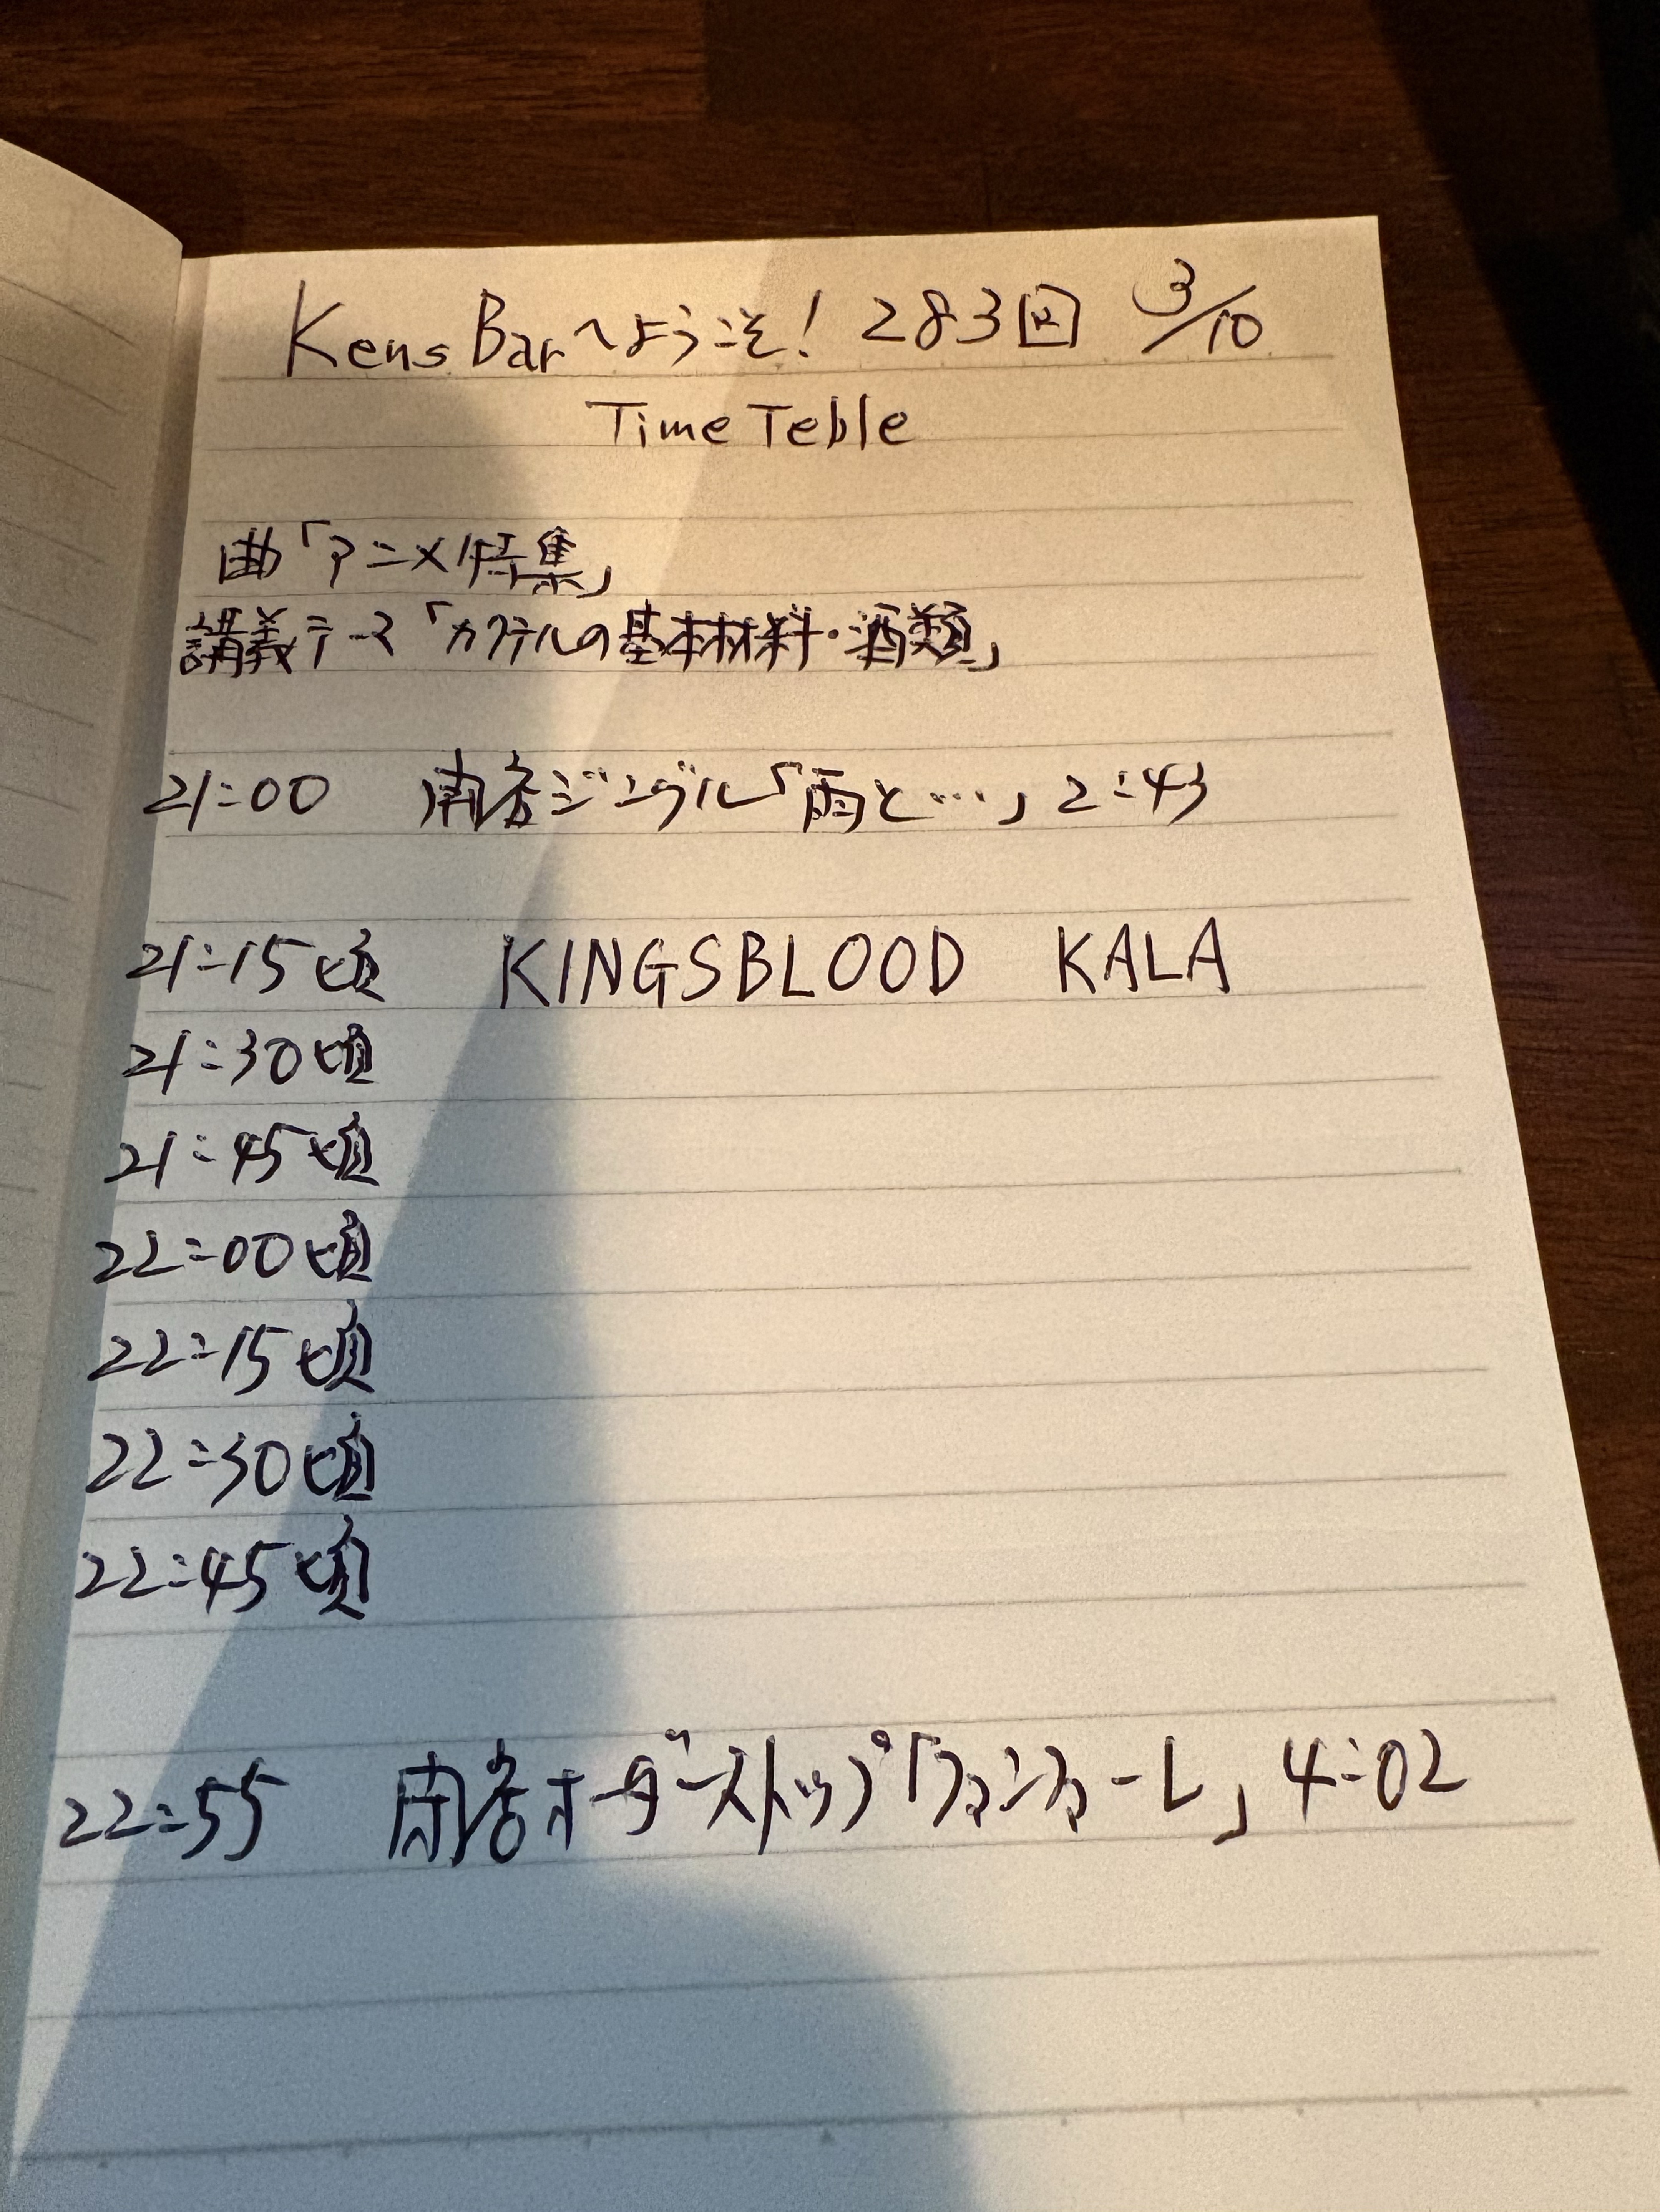 Kens Barへようこそ! 283回 3/10
Time Teble
曲「アニメ特集」
講義テーマ「カクテルの基本材料・酒類」
21:00 ジングル「雨と…」2:43
21:15頃 KINGSBLOOD KALA
21:30頃
21:45頃
22:00頃
22:15頃
22:30頃
22:45頃
22:55 オーダーストップ「ファンファーレ」4:02